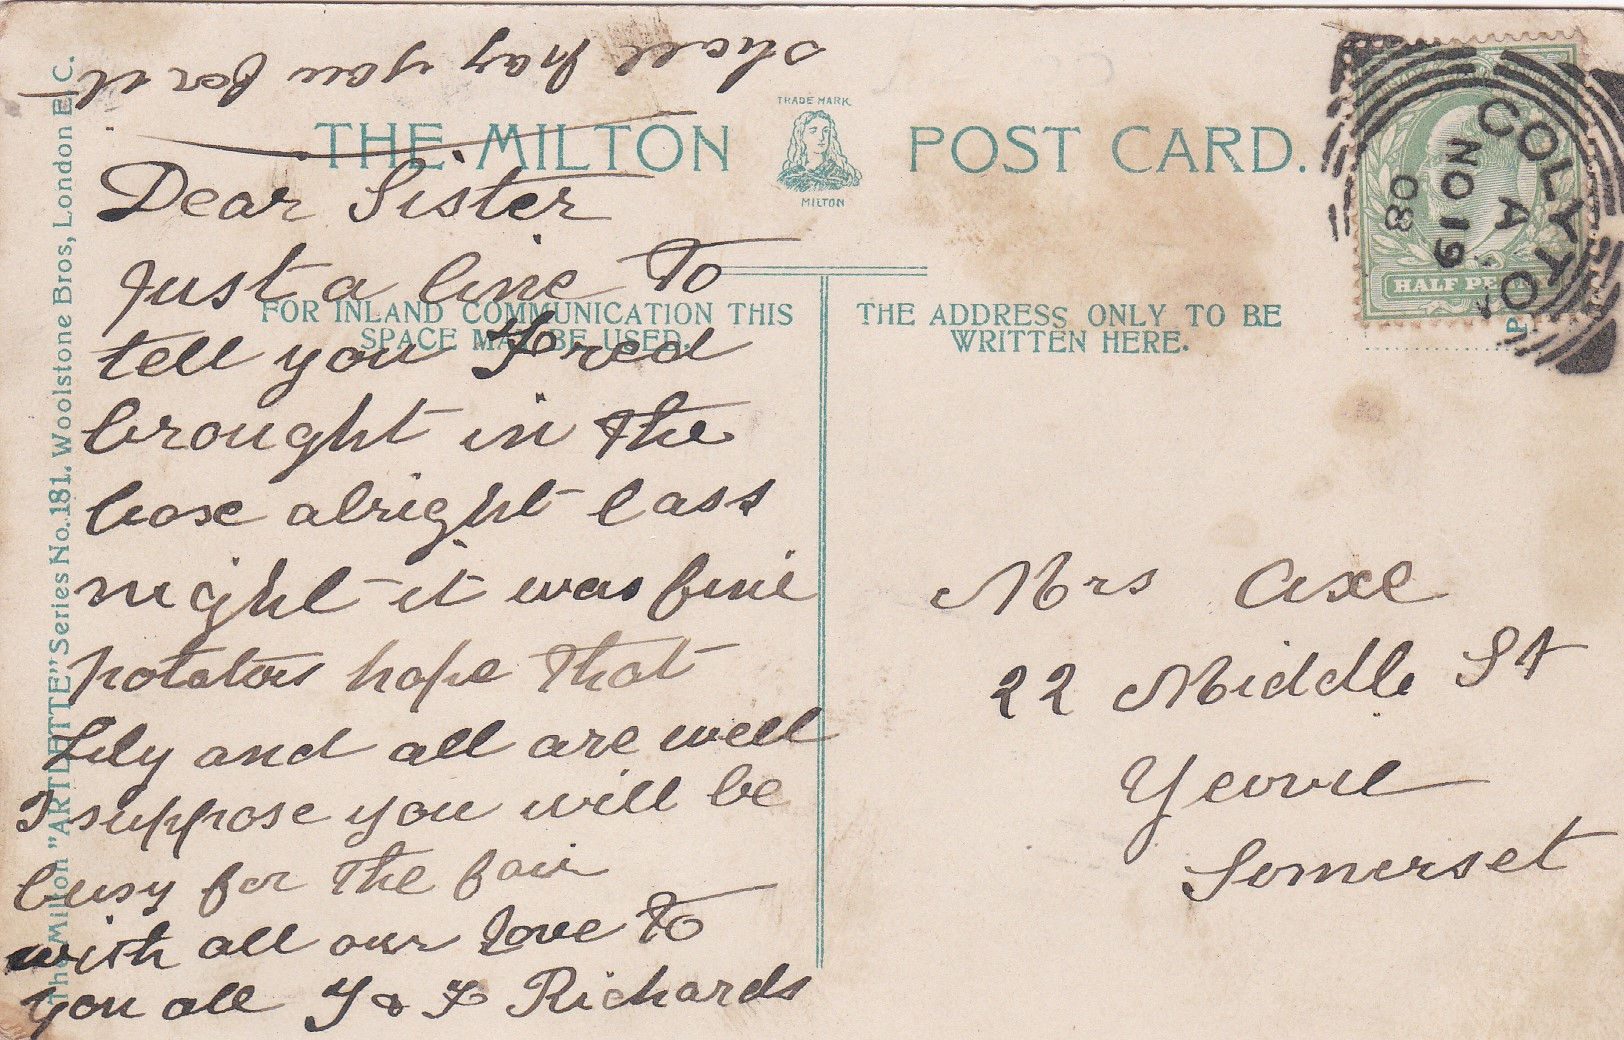 shall pay you for it
THE MILTON POST CARD.
TRADE MARK
MILTON
FOR INLAND COMMUNICATION THIS
SPACE MAY BE USED.
THE ADDRESS ONLY TO BE
WRITTEN HERE.
The Milton "ARTLETTE" Series No. 181. Woolstone Bros, London E.C.
COLYTON
A
NO 19
08
HALF PE
P
Dear Sister
Just a line to
tell you Fred
brought in the
box alright lass
night it was fine
potatoes hope that
Lily and all are well
I suppose you will be
busy for the fair
with all our Love to
you all & F Richards
Mrs Axe
22 Middle St
Yeovil
Somerset